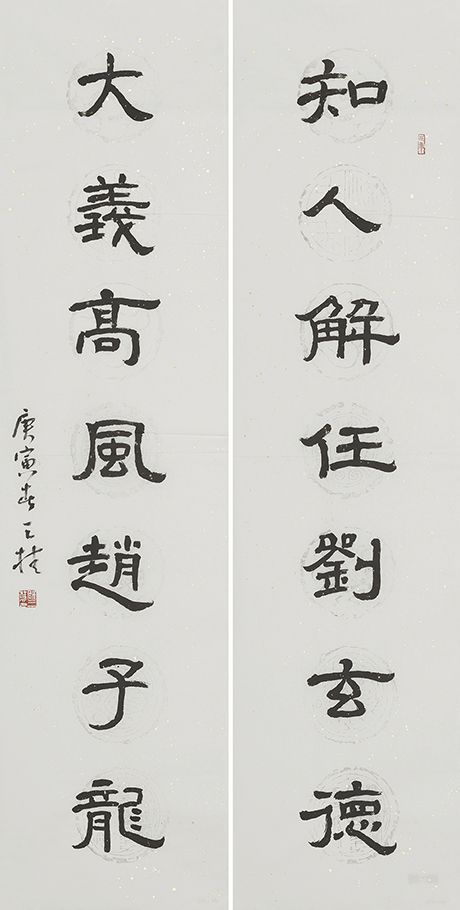 知人解任劉玄德
大義高風趙子龍
庚寅春